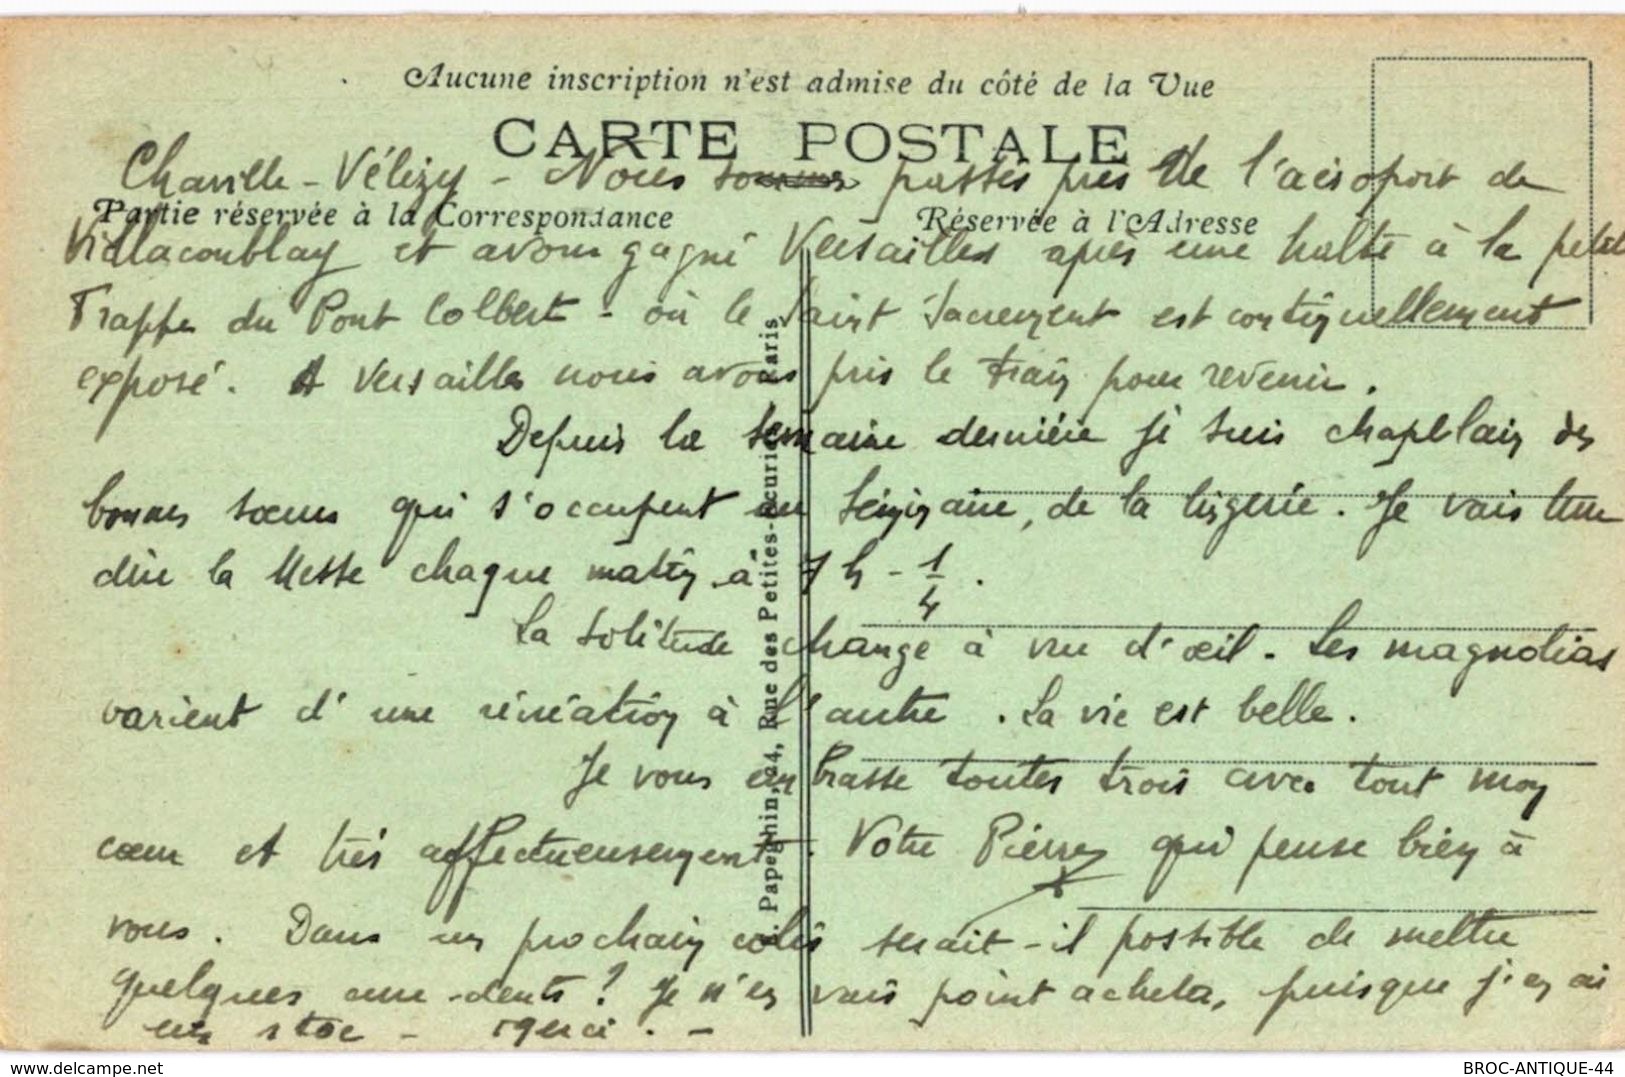 Aucune inscription n'est admise du côté de la Vue
CARTE POSTALE
Chaville - Vélizy - Nous sommes passés près de l'aéroport de
Partie réservée à la Correspondance
Réservée à l'Adresse
Villacoublay et avons gagné Versailles après une halte à la petite
Trappe du Pont Colbert - où le Saint Sacrement est continuellement
exposé. A Versailles nous avons pris le train pour revenir.
Depuis la semaine dernière je suis chapelain des
bonnes sœurs qui s'occupent au Séminaire, de la lingerie. Je vais leur
dire la Messe chaque matin à 7 h - 1/4.
La solitude change à vue d'œil. Les magnolias
varient d'une récréation à l'autre. La vie est belle.
Je vous embrasse toutes trois avec tout mon
cœur et très affectueusement. Votre Pierre qui pense bien à
vous. Dans un prochain colis serait-il possible de mettre
quelques cure-dents ? Je n'en vais point acheter, puisque j'en ai
un stoc - merci. -
Papeghin, 24, Rue des Petites-Ecuries, Paris
BROC-ANTIQUE-44
www.delcampe.net